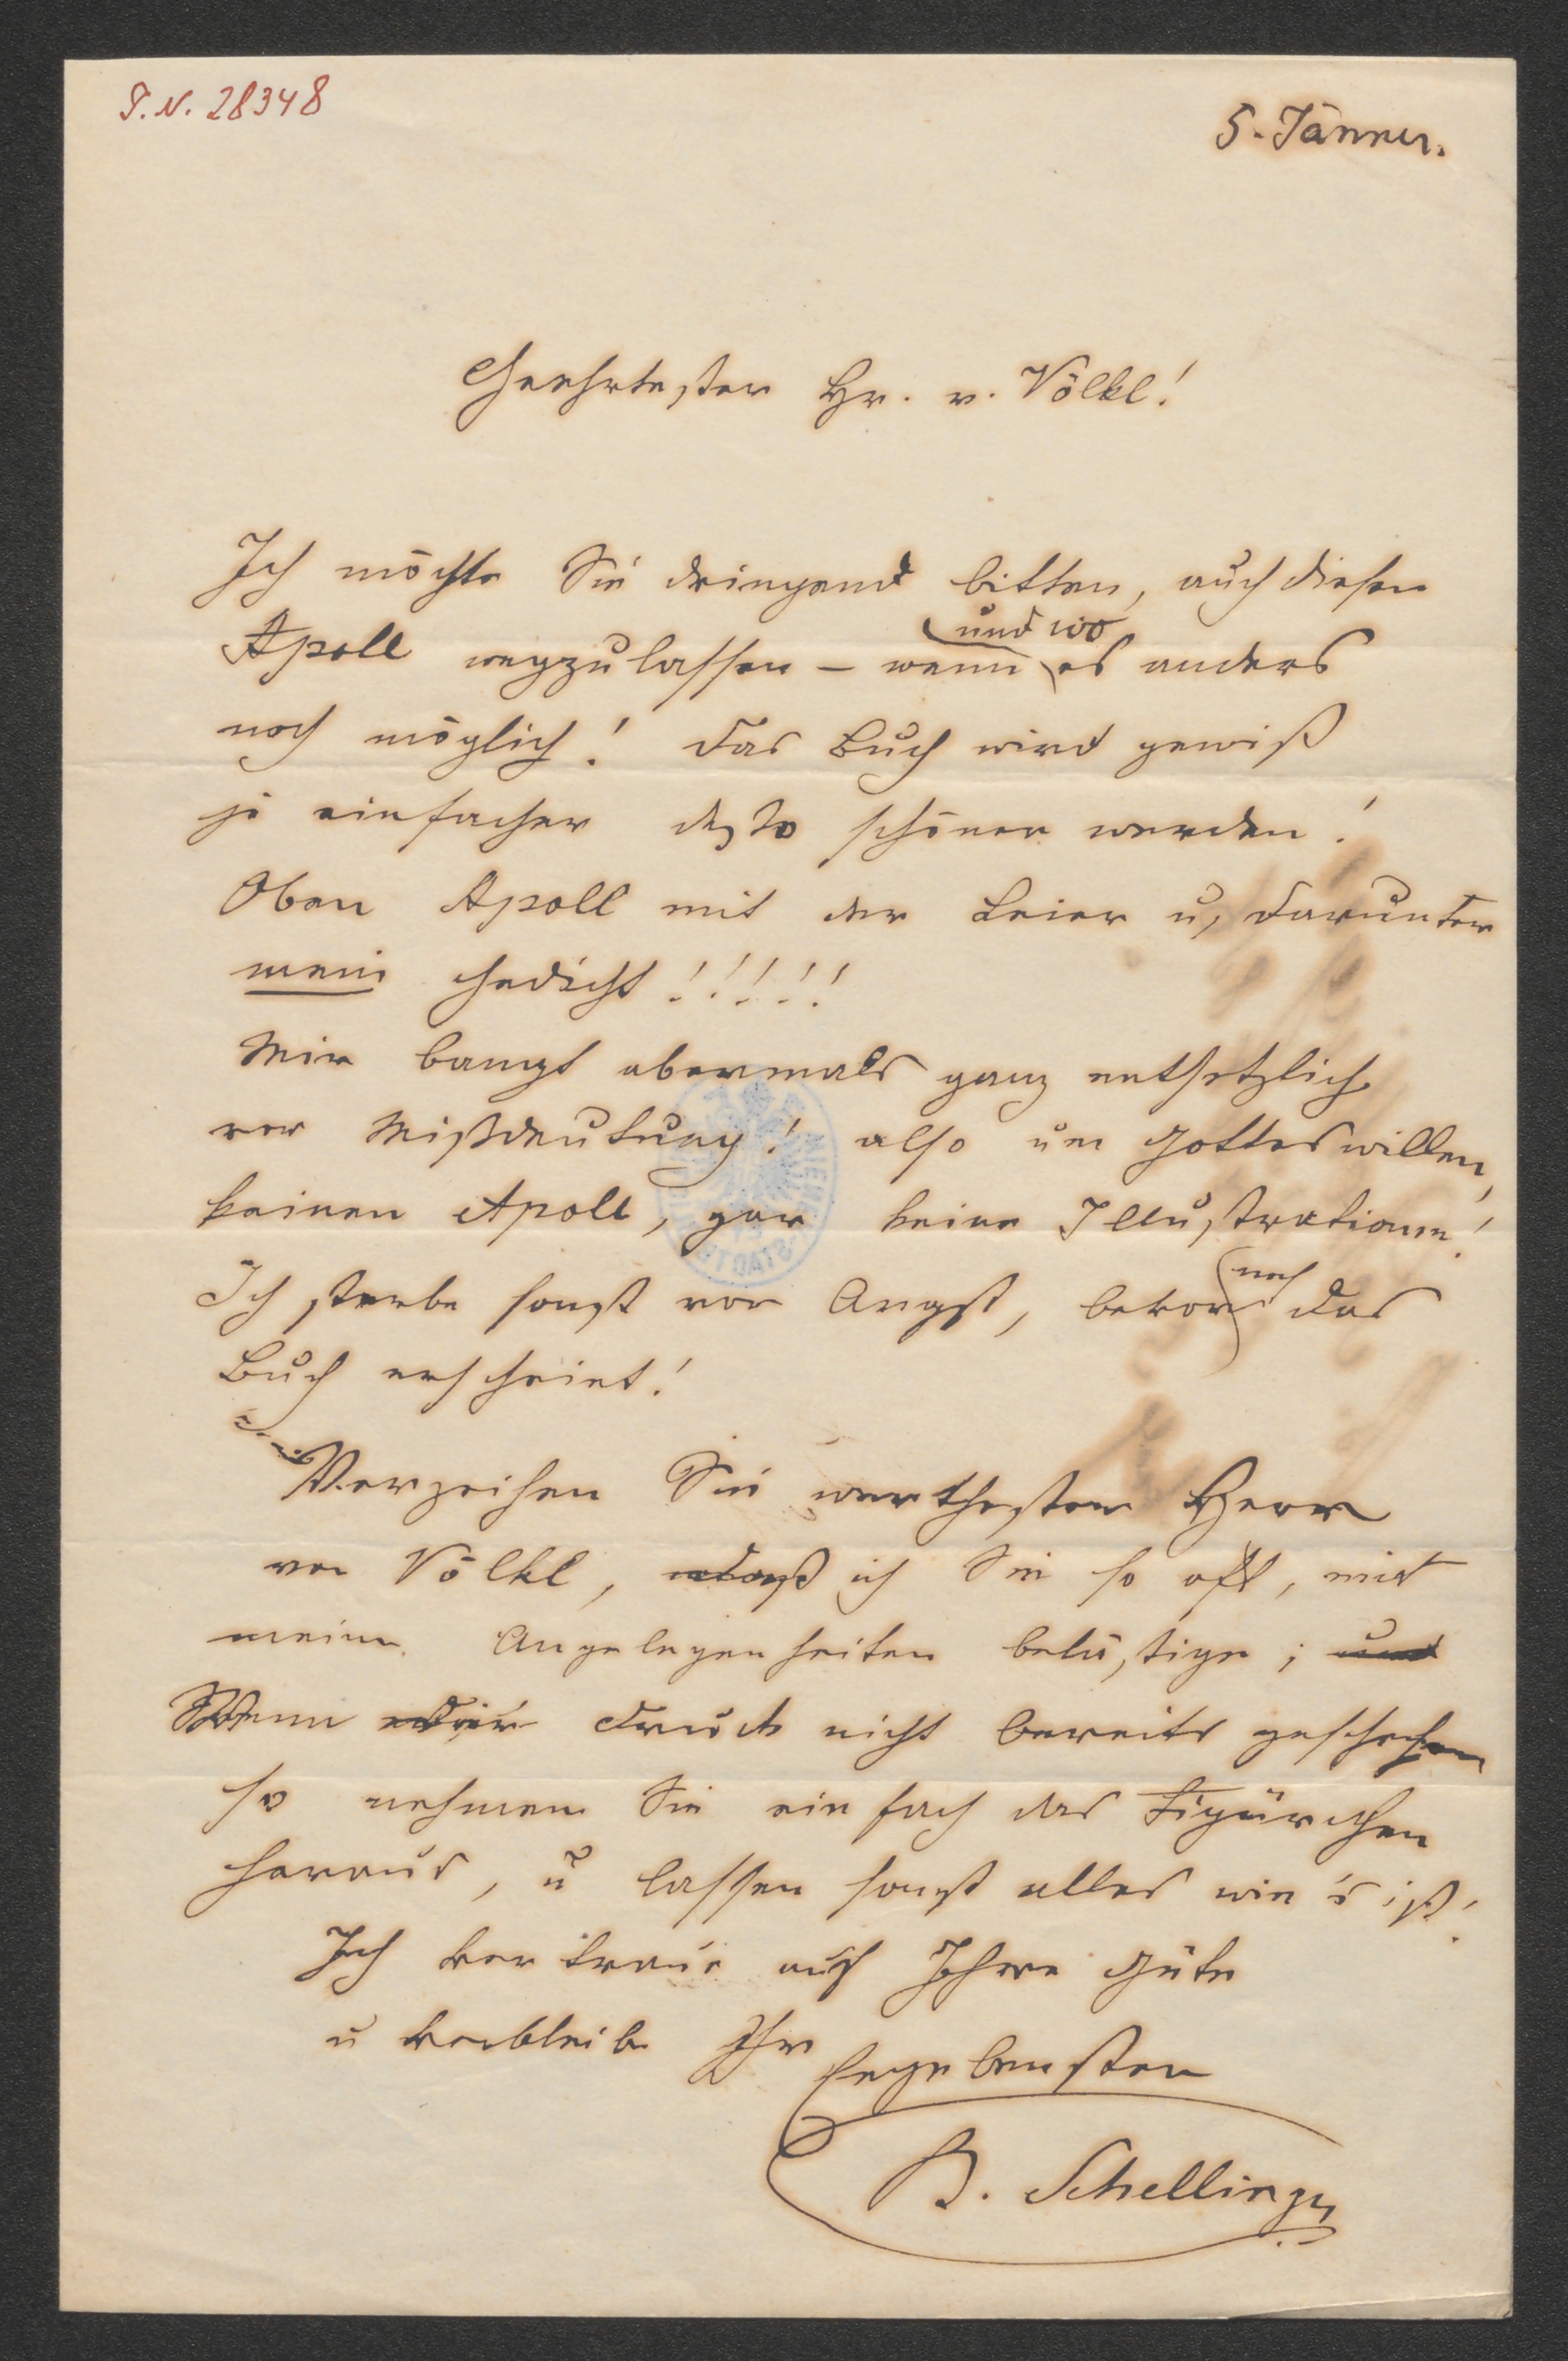 I. N. 28348
5. Jänner.
Geehrtester Hr. v. Völkl!
Ich möchte Sie dringend bitten, auch diesen
und wo
Apoll wegzulassen – wenn es anders
noch möglich! Das Buch wird gewiß
je einfacher desto schöner werden!
Oben Apoll mit der Leier u, darunter
mein Gedicht!!!!!
Mir bangt abermals ganz entsetzlich
vor Mißdeutung! also um Gotteswillen,
keinen Apoll, gar keine Illustrationen!
noch
Ich sterbe sonst vor Angst, bevor das
Buch erscheint!
Verzeihen Sie werthester Herr
von Völkl, daß ich Sie so oft, mit
meinen Angelegenheiten belästige; und
Wenn Druck nicht bereits geschehen
so nehmen Sie einfach das Figürchen
heraus, u lassen sonst alles wie's ist!
Ich vertraue auf Ihre Güte
u verbleibe Ihr
Ergebenster
B. Schellinger